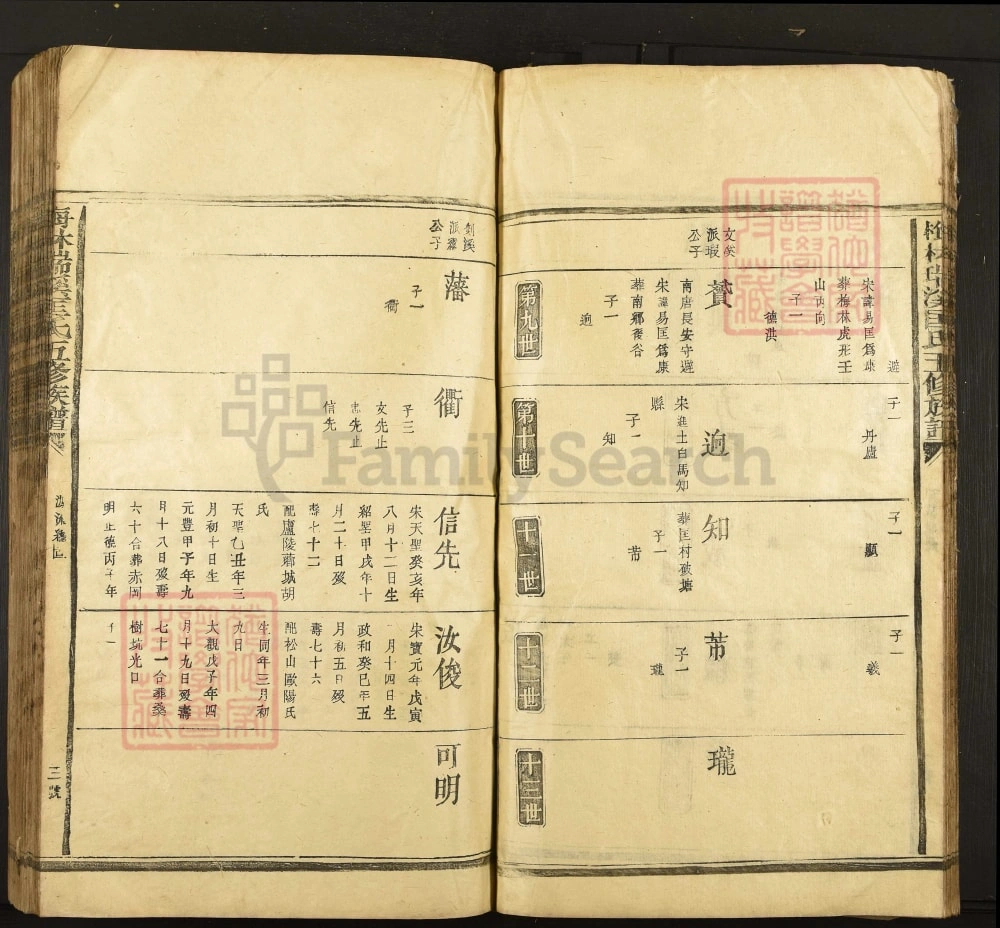 文溪
派瑕
公子
宋諱易匡爲康
葬梅林虎形壬
山丙向
子一
德洪
第九世
贊
南唐長安守避
宋諱易匡爲康
葬南鄉
子一
逈
子一
丹盧
第十世
逈
宋進士白馬知
縣
子一
知
子一
顯
十一世
知
葬匡村破塘
子一
芾
子一
羲
十二世
芾
子一
瓏
十三世
瓏
梅林瑞溪匡氏五修族譜
劍溪
派霽
公子
藩
子一
衢
衢
子三
友先止
忠先止
信先
信先
宋天聖癸亥年
八月十二日生
紹聖甲戌年十
月二十日歿
壽七十二
配廬陵薌城胡
氏
天聖乙丑年三
月初十日生
元豐甲子年九
月十八日歿壽
六十合葬赤岡
明正德丙子年
汝俊
宋寶元年戊寅
月十四日生
政和癸巳年五
月初五日歿
壽七十六
配松山歐陽氏
生同年三月初
九日
大觀戊子年四
月十九日歿壽
七十一合葬
樹坑光口
子一
可明
三號
FamilySearch